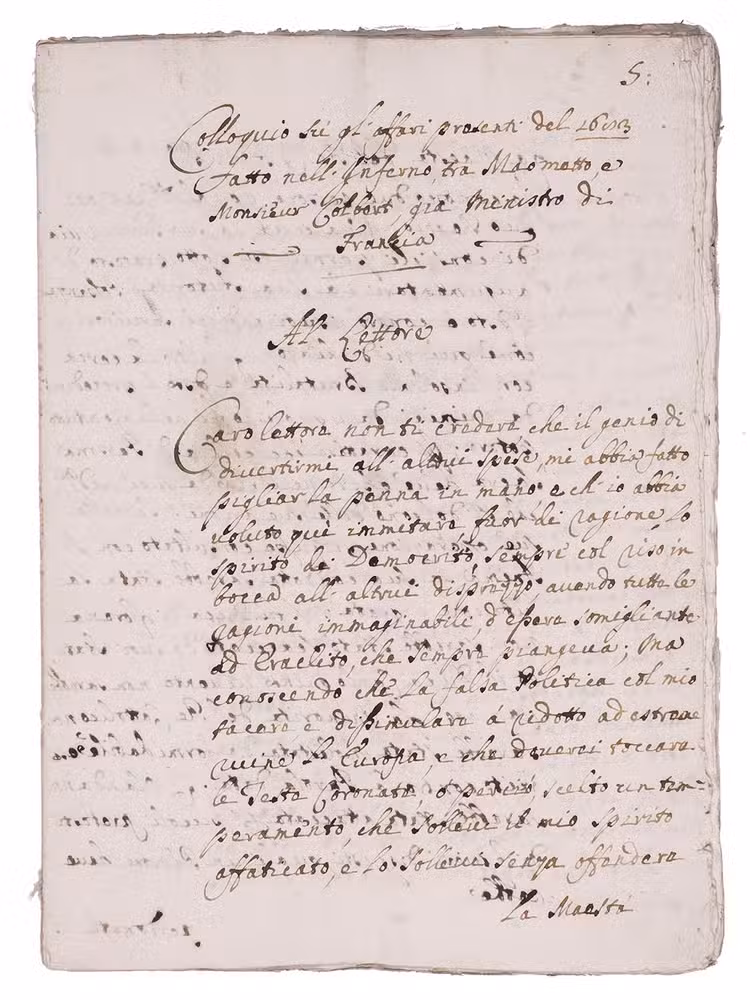 5:
Colloquio sù gl'affari presenti del 1683
fatto nell'Inferno, tra Maometto, e
Monsieur Colbert, già Ministro di
Francia
Al Lettore
Caro lettore non ti credere che il genio di
divertirmi all'altrui spese, mi abbia fatto
pigliar la penna in mano e ch'io abbia
voluto quì immitare, fuor di ragione, lo
spirito di Democrito, sempre col riso in
bocca all'altrui disprezzo; avendo tutte le
ragioni immaginabili, d'essere somigliante
ad Eraclito, che sempre piangeva; Ma
conoscendo che la falsa Politica col mio
tacere e dissimulare à ridotto ad estreme
ruine l'Europa, e che doverei toccare
le Teste Coronate, ò perciò, scelto un tem=
peramento, che sollevi il mio spirito
affaticato, e lo sollevi senza offendere
la Maestà